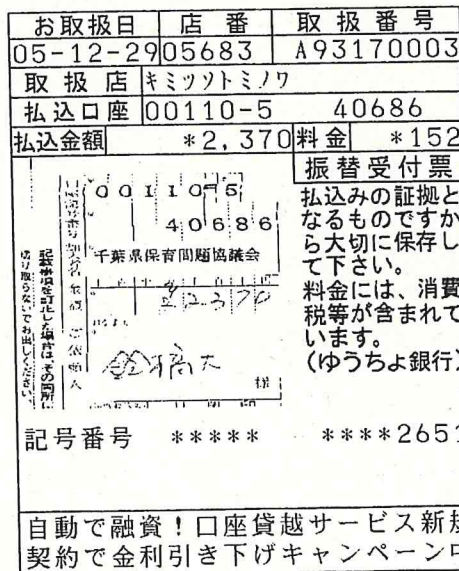 お取扱日 店番 取扱番号
05-12-29 05683 A93170003
取扱店 キミツソトミノワ
払込口座 00110-5 40686
払込金額 *2,370 料金 *152
振替受付票
払込みの証拠と
なるものですか
ら大切に保存し
て下さい。
料金には、消費
税等が含まれて
います。
(ゆうちょ銀行)
00110 5
40686
千葉県保育問題協議会
¥2370
様
記載事項を訂正した場合は、その箇所に
切り取らないでお出しください。
記号番号 ***** ****2651
自動で融資！口座貸越サービス新規
契約で金利引き下げキャンペーン中